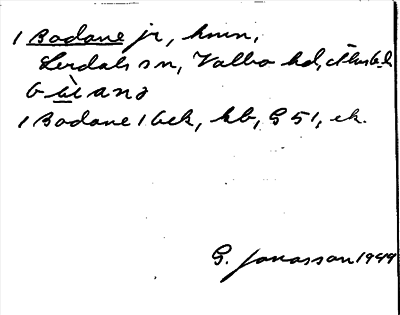 1 Bodane jr, hmn,
Lerdals sn, Valbo hd, Älvsb. l.
bùana
1 Bodane 1 bek, kb, G 51, ek.
G. Jonasson 1949